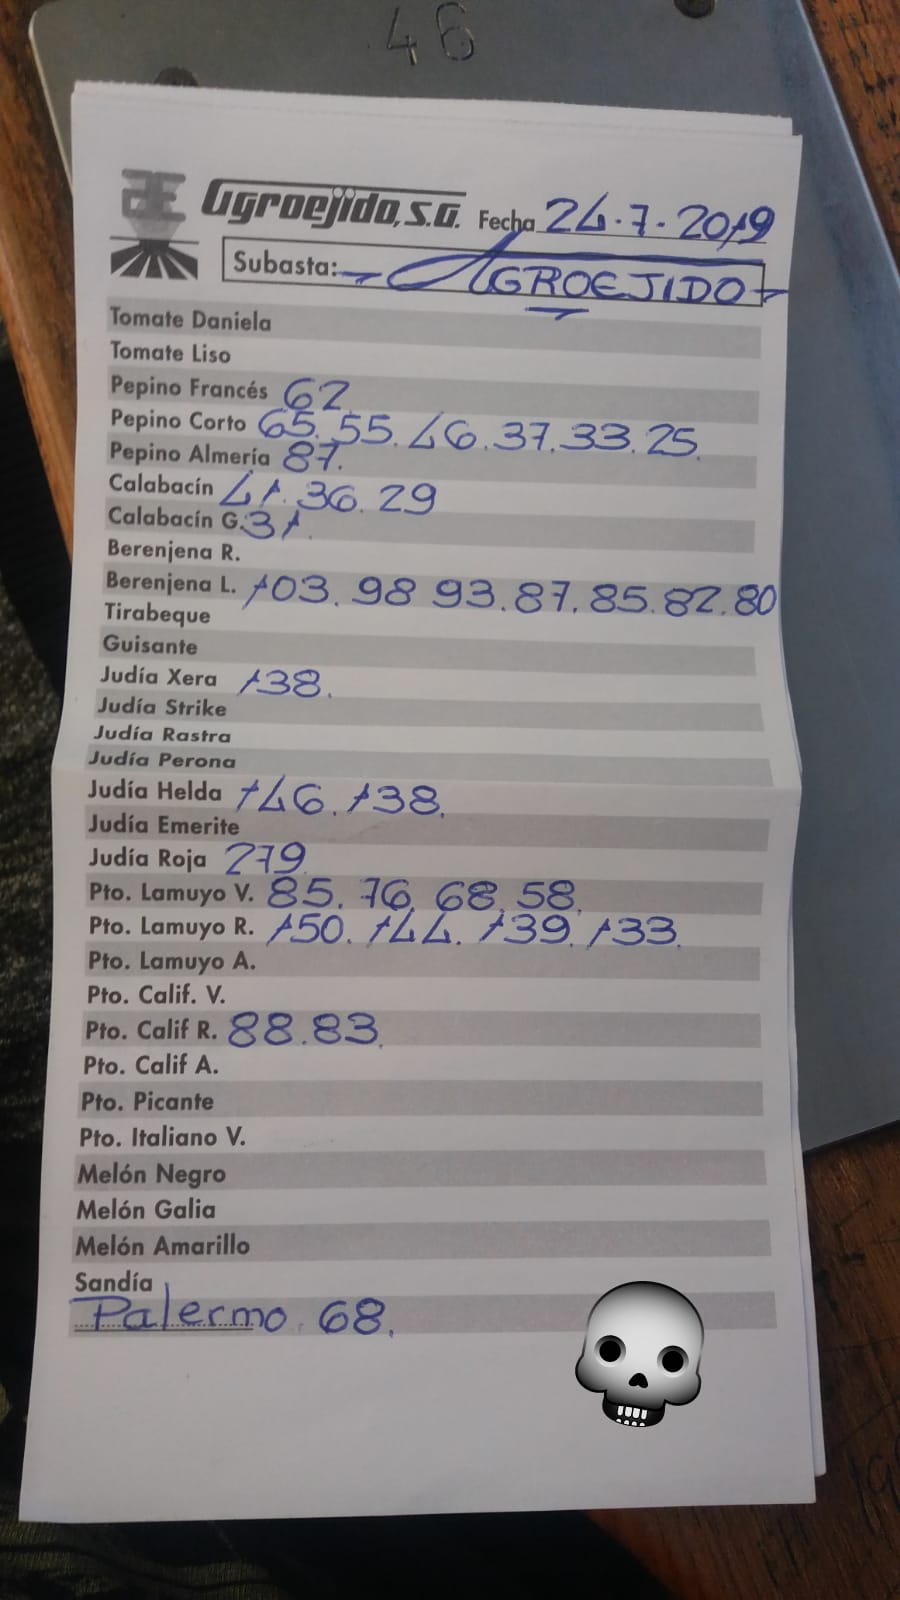 46
Agroejido, S.A. Fecha 24.7.2019
Subasta: AGROEJIDO
Tomate Daniela
Tomate Liso
Pepino Francés 62
Pepino Corto 65. 55. 46. 37. 33. 25.
Pepino Almería 87.
Calabacín 41. 36. 29
Calabacín G. 31.
Berenjena R.
Berenjena L. 103. 98 93. 87. 85. 82. 80
Tirabeque
Guisante
Judía Xera 138.
Judía Strike
Judía Rastra
Judía Perona
Judía Helda 146. 138.
Judía Emerite
Judía Roja 279
Pto. Lamuyo V. 85. 76. 68. 58.
Pto. Lamuyo R. 150. 144. 139. 133.
Pto. Lamuyo A.
Pto. Calif. V.
Pto. Calif R. 88.83.
Pto. Calif A.
Pto. Picante
Pto. Italiano V.
Melón Negro
Melón Galia
Melón Amarillo
Sandía
Palermo. 68.